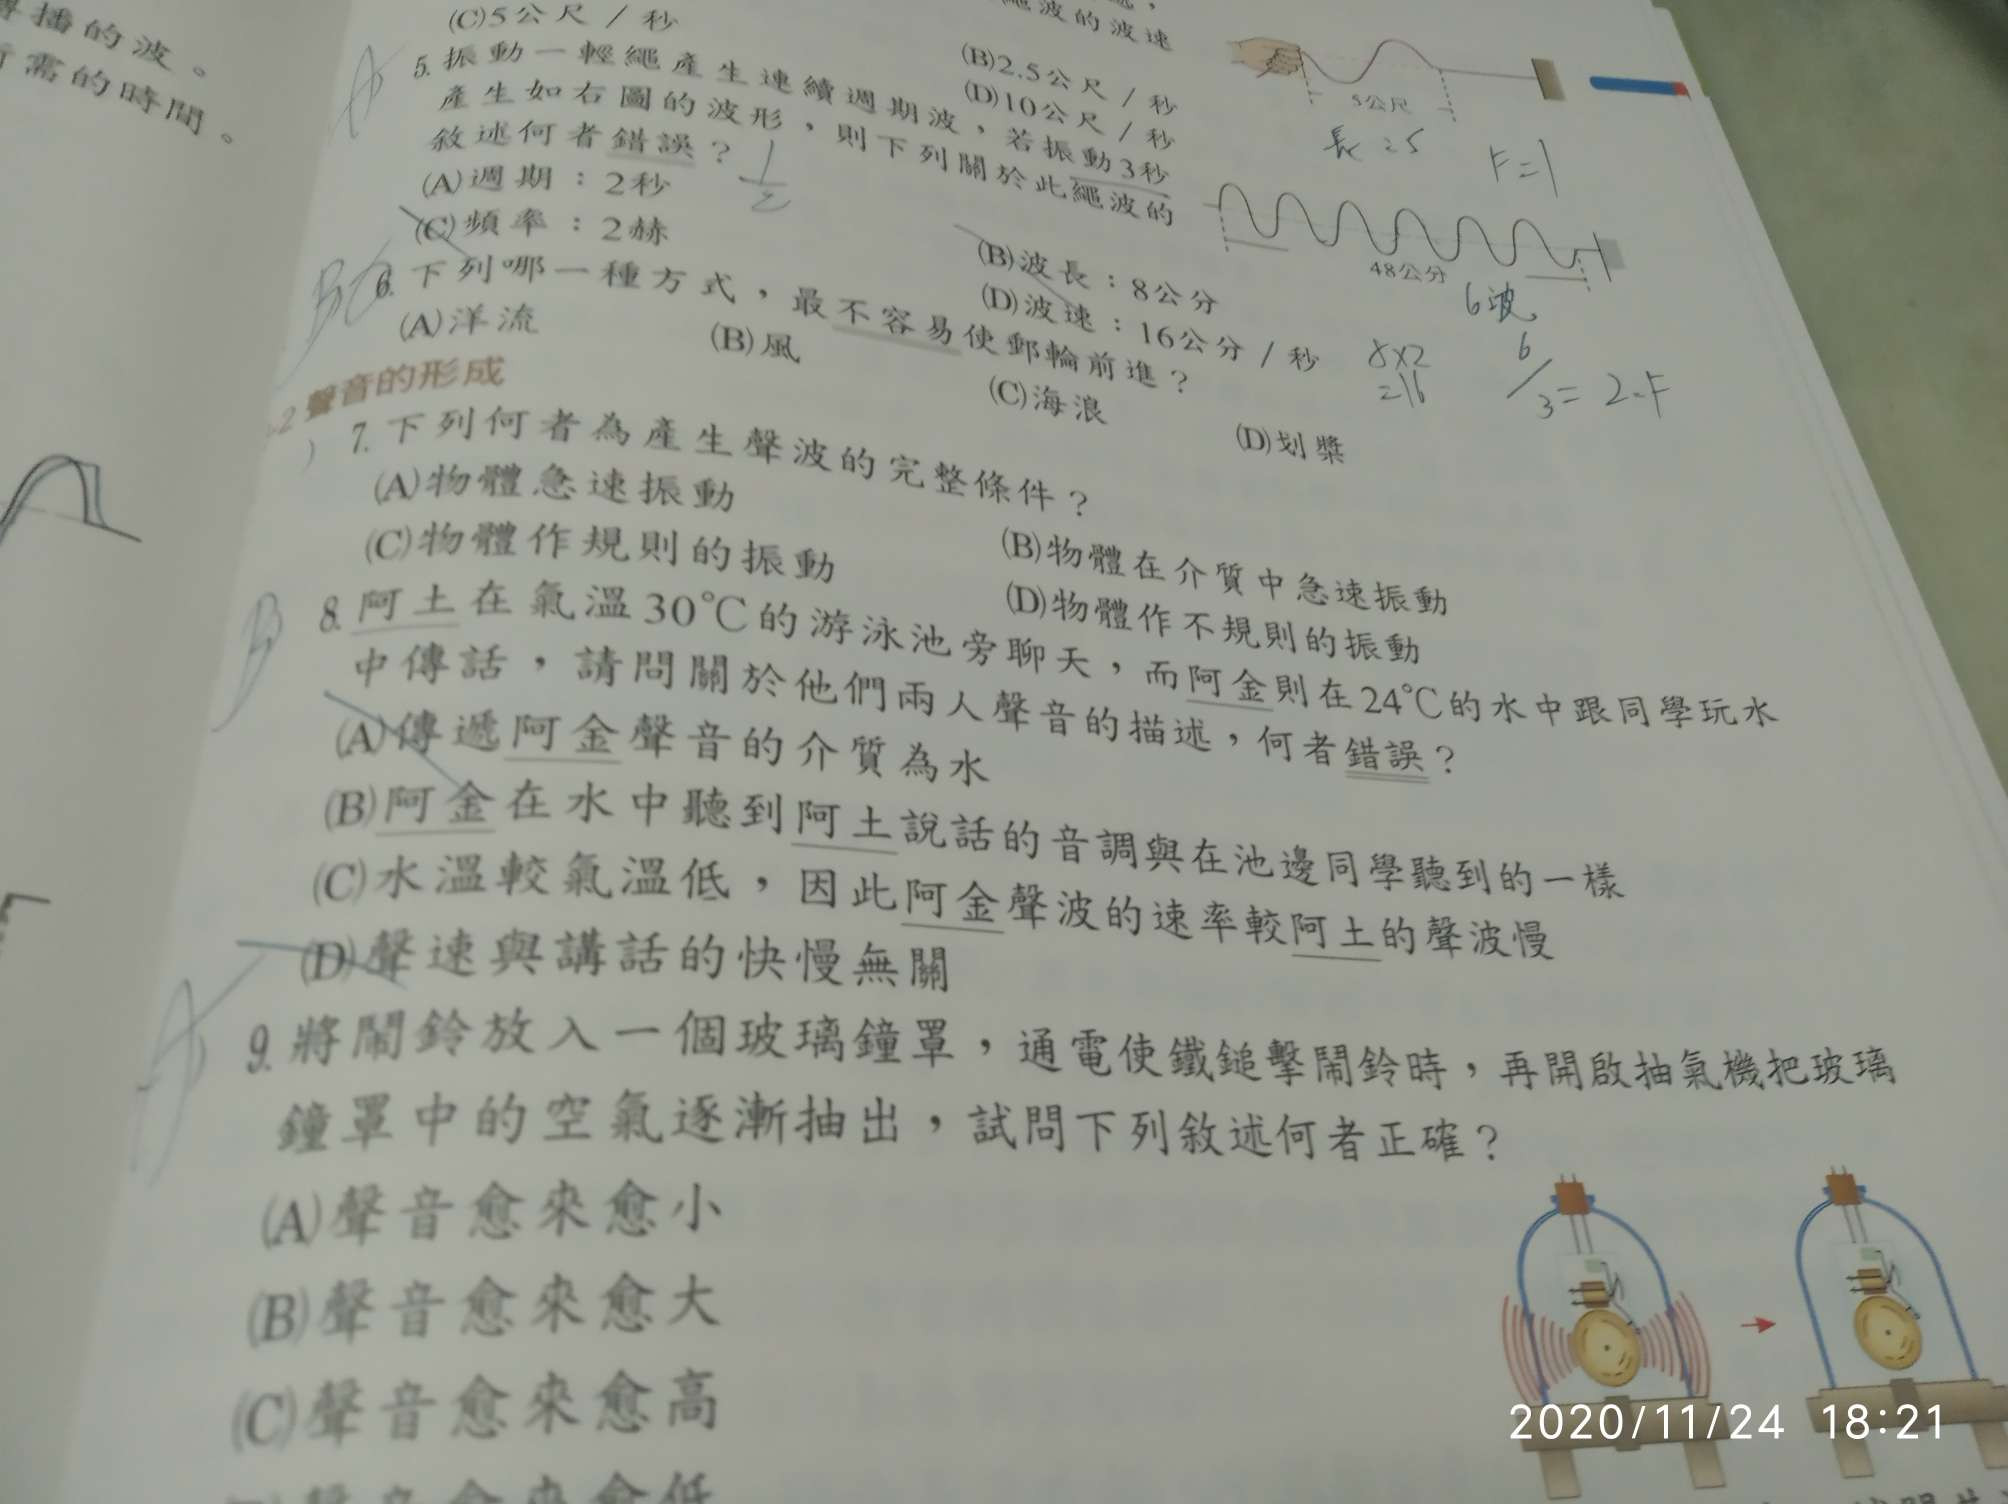 傳播的波。
需的時間。
繩波的波速
(B)2.5公尺／秒
(C)5公尺／秒
(D)10公尺／秒
5公尺
長=5
F=1
A
5.振動一輕繩產生連續週期波，若振動3秒
產生如右圖的波形，則下列關於此繩波的
敘述何者錯誤？
(A)週期：2秒
(B)波長：8公分
(C)頻率：2赫
(D)波速：16公分／秒
1/2
48公分
6波
8×2
=16
6/3=2=F
6.下列哪一種方式，最不容易使郵輪前進？
(A)洋流
(B)風
(C)海浪
(D)划槳
2 聲音的形成
7.下列何者為產生聲波的完整條件？
(A)物體急速振動
(B)物體在介質中急速振動
(C)物體作規則的振動
(D)物體作不規則的振動
B
8.阿土在氣溫30℃的游泳池旁聊天，而阿金則在24℃的水中跟同學玩水
中傳話，請問關於他們兩人聲音的描述，何者錯誤？
(A)傳遞阿金聲音的介質為水
(B)阿金在水中聽到阿土說話的音調與在池邊同學聽到的一樣
(C)水溫較氣溫低，因此阿金聲波的速率較阿土的聲波慢
(D)聲速與講話的快慢無關
A
9.將鬧鈴放入一個玻璃鐘罩，通電使鐵鎚擊鬧鈴時，再開啟抽氣機把玻璃
鐘罩中的空氣逐漸抽出，試問下列敘述何者正確？
(A)聲音愈來愈小
(B)聲音愈來愈大
(C)聲音愈來愈高
聲音愈來愈低
2020/11/24 18:21